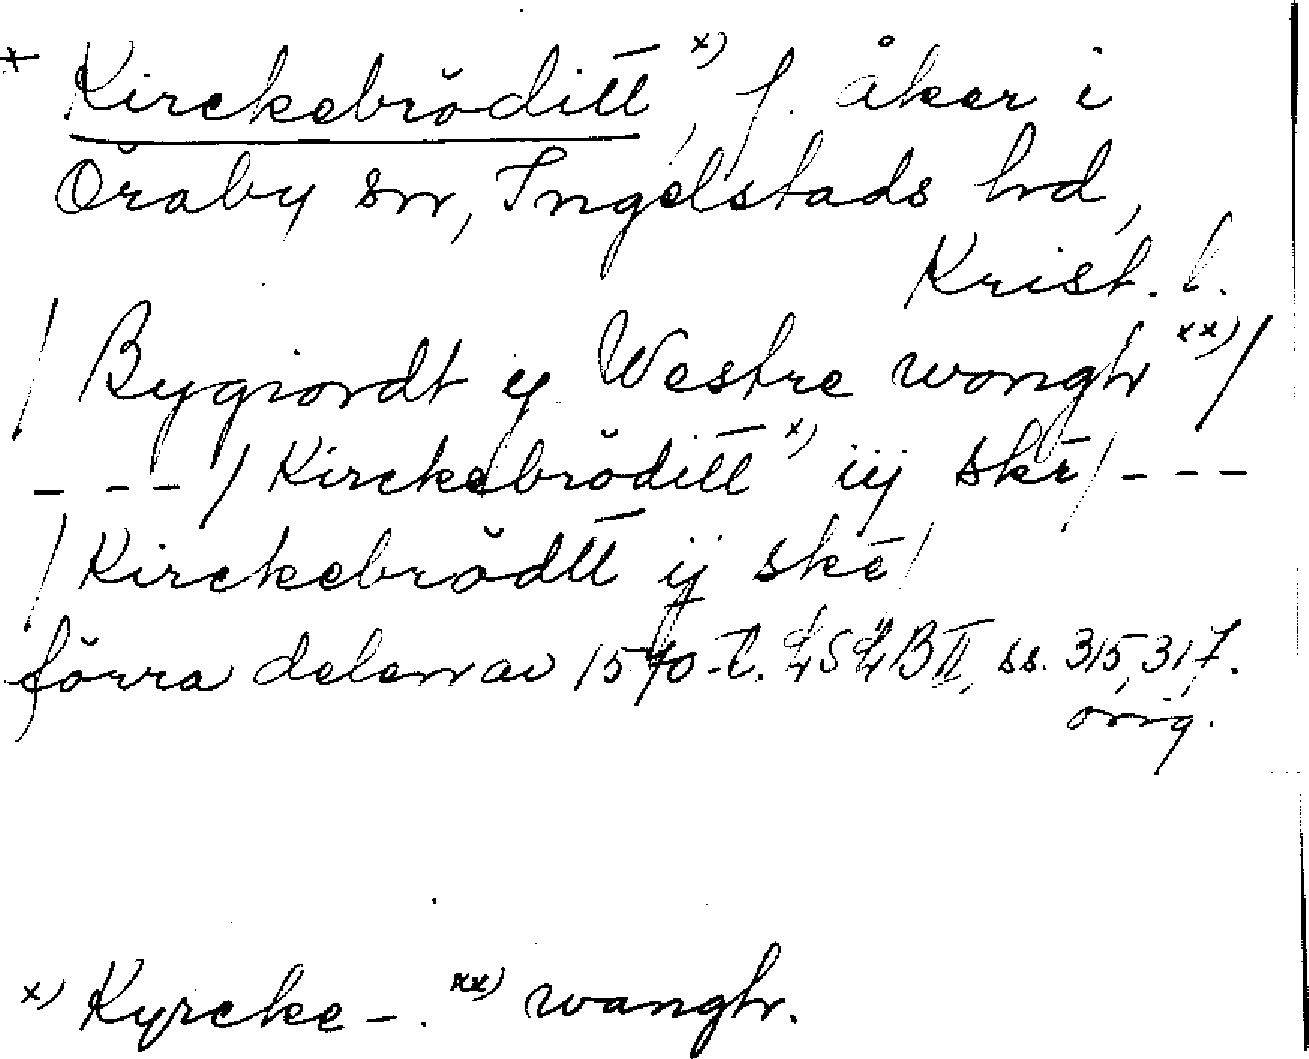 + Kirckebröditt̄ x), f. åker i
Öraby sn, Ingelstads hd,
Krist. l.
/ Bygiordt ij Westre wongh xx) /
- - - / Kirckebröditt̄ x) iij skē / - - -
/ Kirckebrödtt̄ ij skē /
förra delen av 1570-t. LSLB II, ss. 315, 317.
orig.
x) Kyrcke -. xx) wangh.